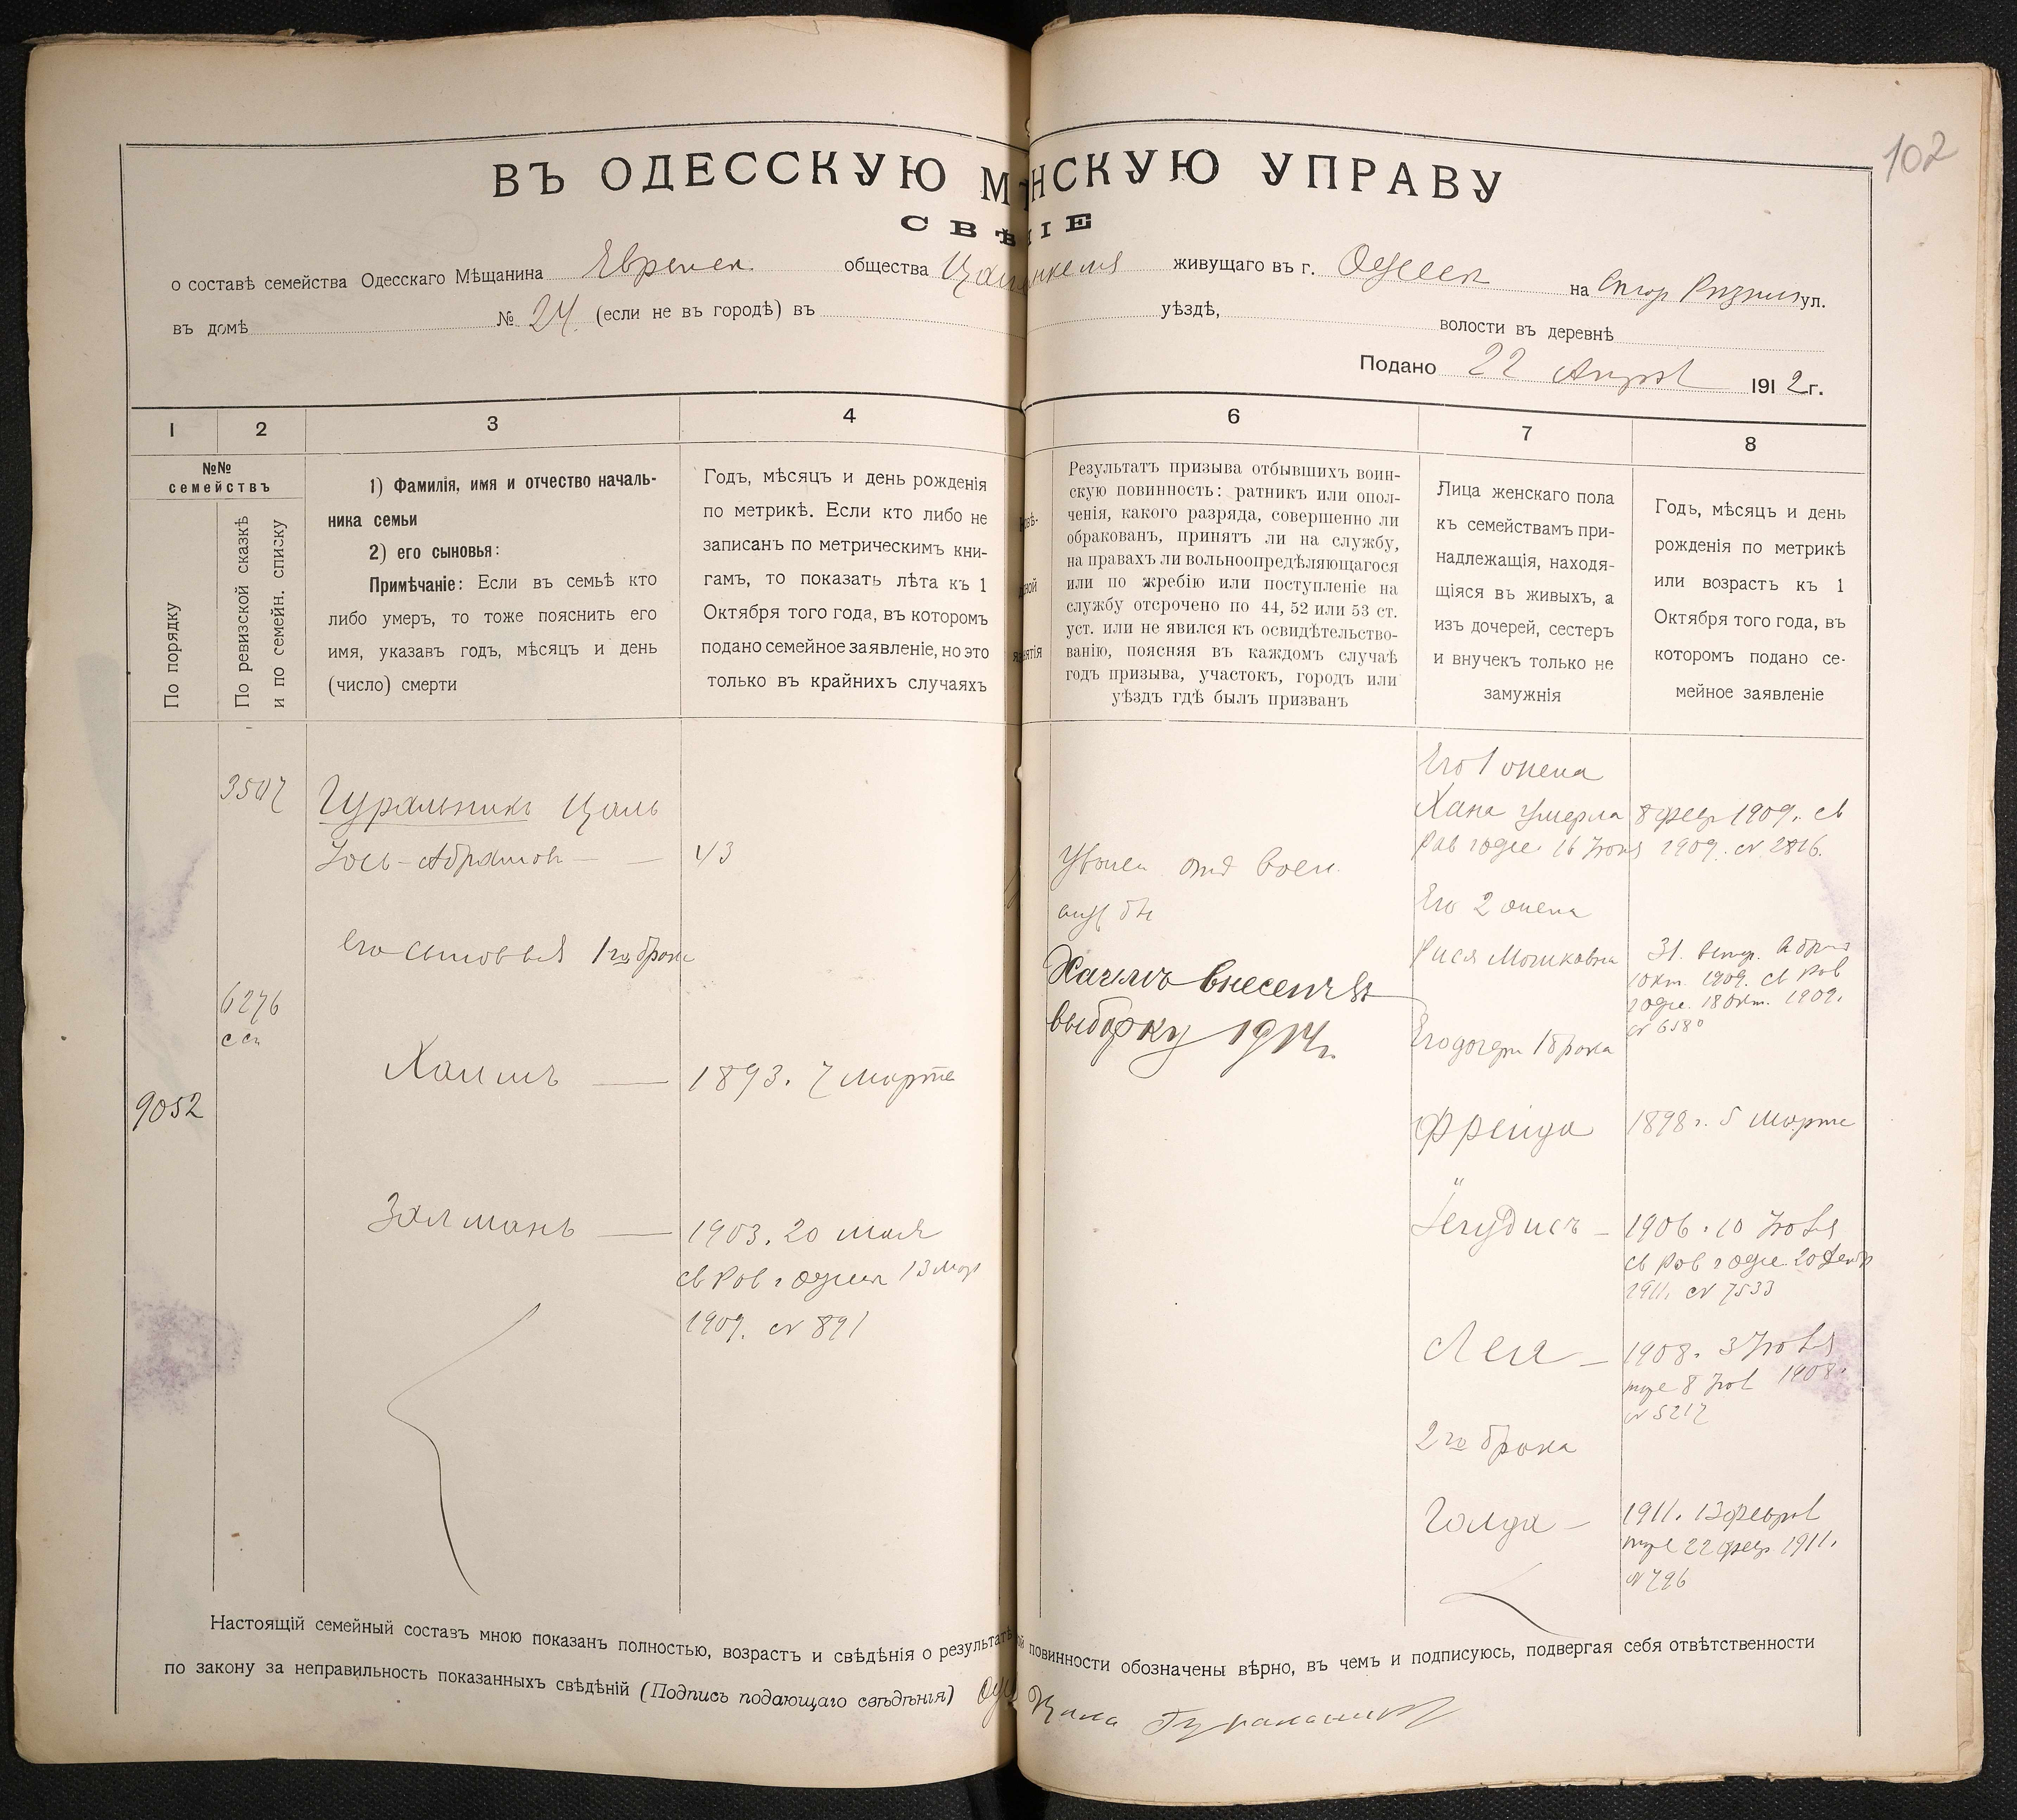 102
ВЪ ОДЕССКУЮ М НСКУЮ УПРАВУ
СВѢ ІЕ
о составѣ семейства Одесскаго Мѣщанина Евреек общества живущаго въ г. Одессе на Стар Ризнич ул.
въ домѣ № 24 (если не въ городѣ) въ уѣздѣ, волости въ деревнѣ
Подано 22 1912 г.
1 2 3 4 6 7 8
№№
семействъ
По порядку
По ревизской сказкѣ
и по семейн. списку
1) Фамилія, имя и отчество началь-
ника семьи
2) его сыновья:
Примѣчаніе: Если въ семьѣ кто
либо умеръ, то тоже пояснить его
имя, указавъ годъ, мѣсяцъ и день
(число) смерти
Годъ, мѣсяцъ и день рожденія
по метрикѣ. Если кто либо не
записанъ по метрическимъ кни-
гамъ, то показать лѣта къ 1
Октября того года, въ которомъ
подано семейное заявленіе, но это
только въ крайнихъ случаяхъ
Результатъ призыва отбывшихъ воин-
скую повинность: ратникъ или опол-
ченія, какого разряда, совершенно ли
обракованъ, принятъ ли на службу,
на правахъ ли вольноопредѣляющагося
или по жребію или поступленіе на
службу отсрочено по 44, 52 или 53 ст.
уст. или не явился къ освидѣтельство-
ванію, поясняя въ каждомъ случаѣ
годъ призыва, участокъ, городъ или
уѣздъ гдѣ былъ призванъ
Лица женскаго пола
къ семействамъ при-
надлежащія, находя-
щіяся въ живыхъ, а
изъ дочерей, сестеръ
и внучекъ только не
замужнія
Годъ, мѣсяцъ и день
рожденія по метрикѣ
или возрастъ къ 1
Октября того года, въ
которомъ подано се-
мейное заявленіе
3507
Гуральникъ Цаль
Іось-Абрамов — — 43
его сыновья 1го брака
6276
сп
9052
Хаимъ — 1893. 7 марта
Залманъ — 1903. 20 мая
св Рав г Одесск 13 мар
1909. № 891
Уволен от воен
Хаимъ внесенъ въ
выборку 1914 г.
Его 1 жена
Хана умерла 8 февр 1909. св
Рав г Одес. 16 Июня 1909. № 2816.
Его 2 жена
Рися Мошковна 31. вступ. в брак
10 кт. 1909. св Рав
г Одес. 18 Окт. 1909.
№ 6580
Его дочери 1 брака
Фрейда 1898 г. 5 марта
Іегудись — 1906. 10 Июля
св Рав г Одес. 20 Декбр
1911. № 7533
Лея — 1908. 3 Июля
8 Июл 1908.
№ 5217
2го брака
Голда — 1911. 13 феврал
22 февр 1911.
№ 796
Настоящій семейный составъ мною показанъ полностью, возрастъ и свѣдѣнія о результатѣ повинности обозначены вѣрно, въ чемъ и подписуюсь, подвергая себя отвѣтственности
по закону за неправильность показанныхъ свѣдѣній (Подпись подающаго свѣдѣнія) Гуральник